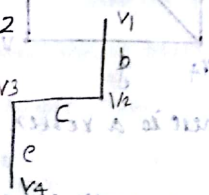 2
V1
b
V3
V2
C
e
V4